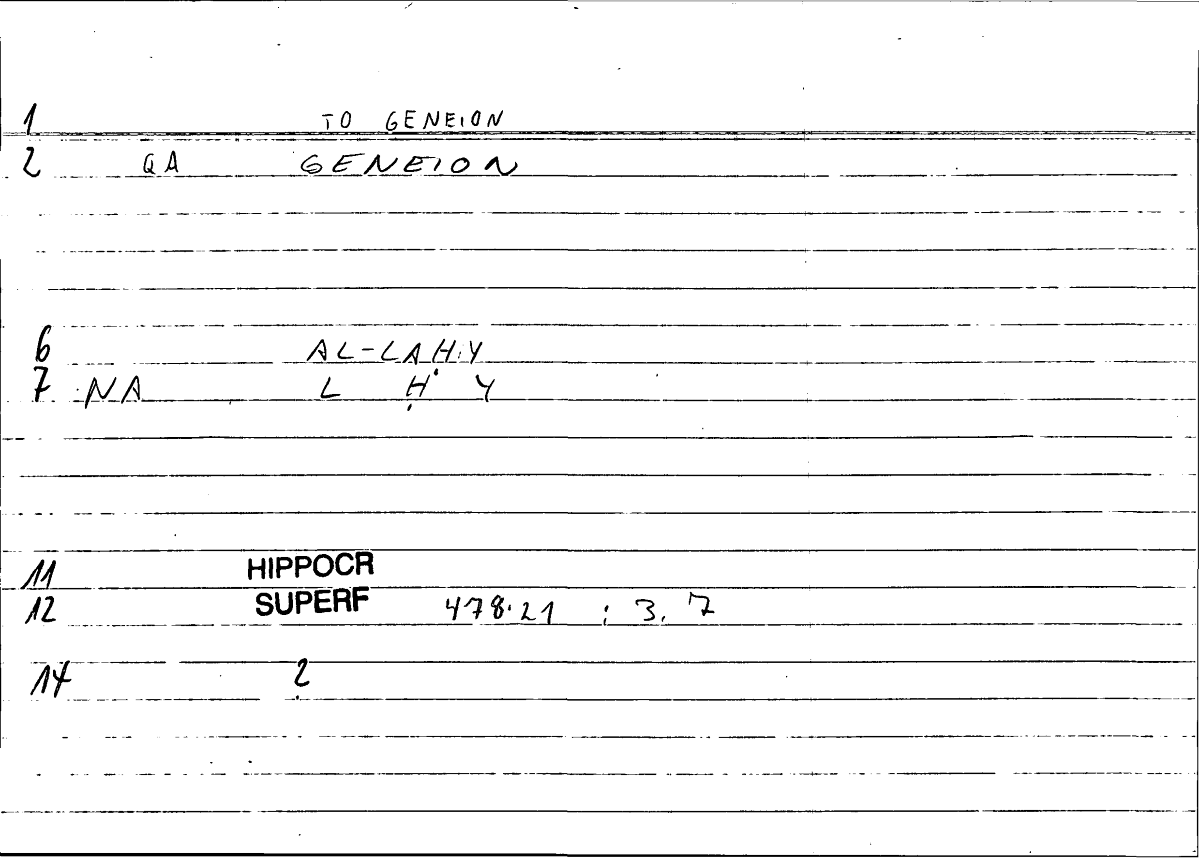 1 TO GENEION
2 QA GENEION
6 AL-LAḤY
7 NA L Ḥ Y
11 HIPPOCR
12 SUPERF 478.21 : 3. 7
14 2